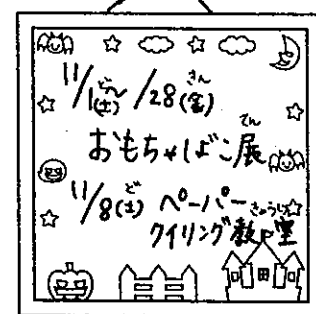 11/1(土)〜/28(金)
おもちゃばこ展
11/8(土) ペーパー
クイリング教室